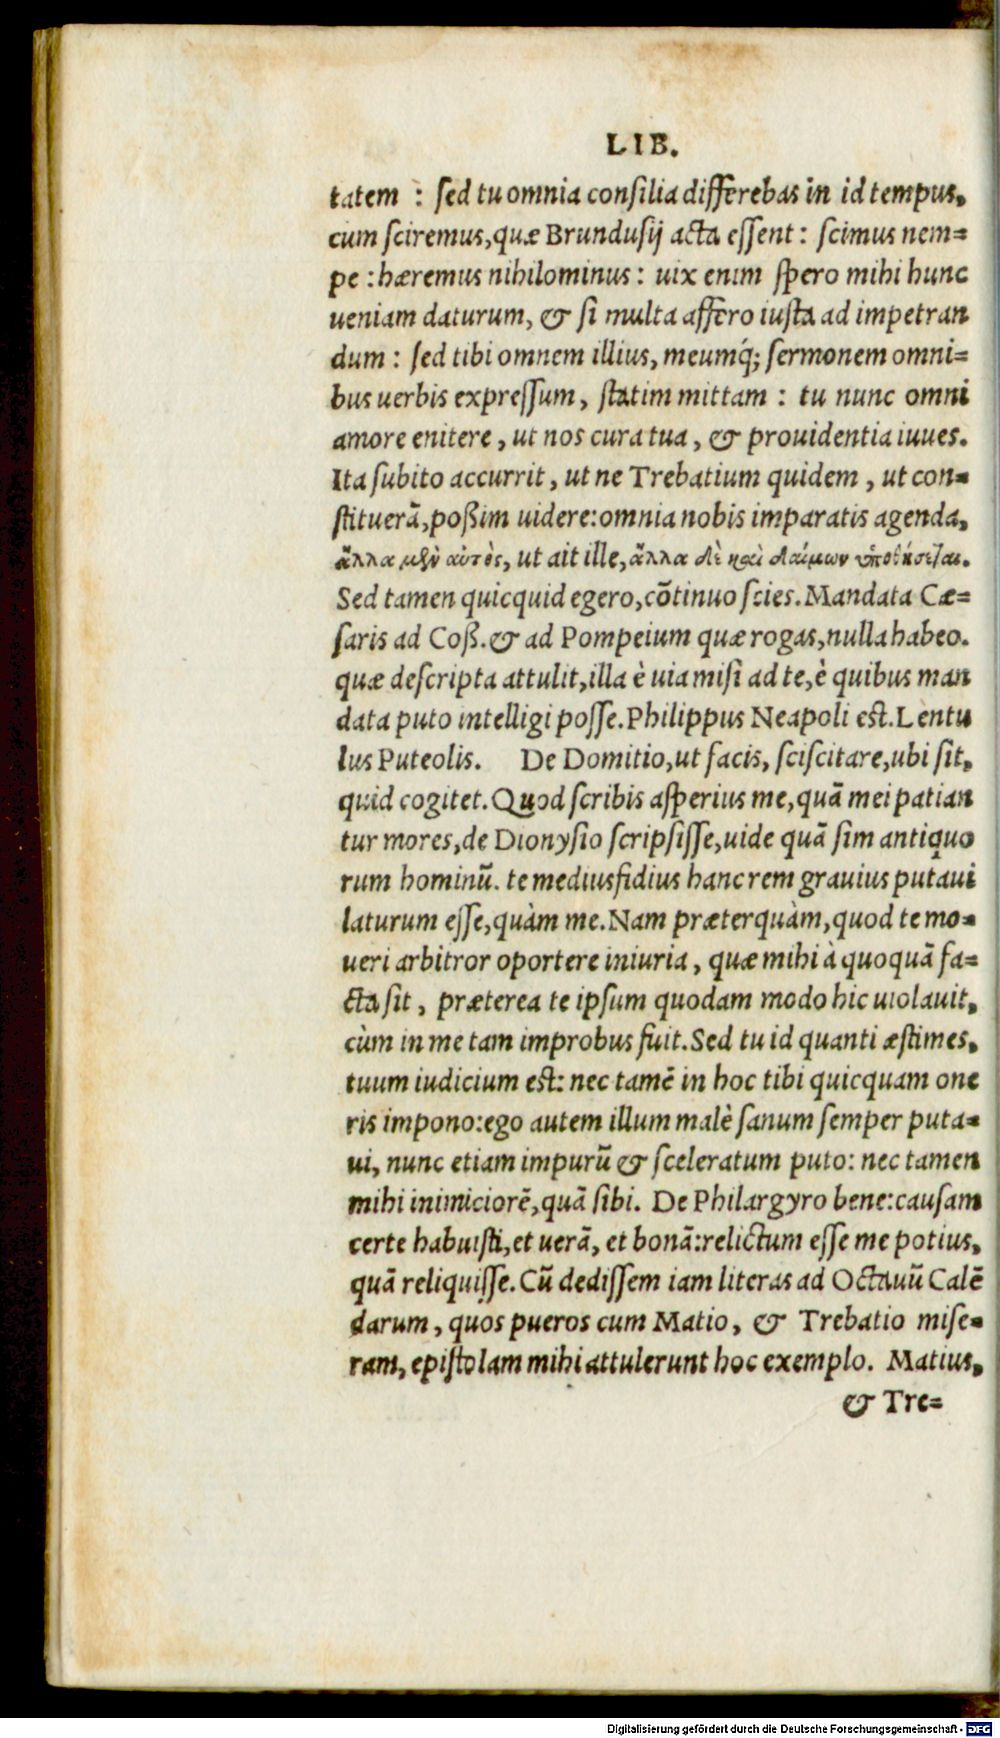 LIB.
tatem : sed tu omnia consilia differebas in id tempus,
cum sciremus, quæ Brundusij acta essent: scimus nem=
pe : hæremus nihilominus: uix enim spero mihi hunc
ueniam daturum, & si multa affero iusta ad impetran
dum: sed tibi omnem illius, meumq́; sermonem omni=
bus uerbis expressum, statim mittam : tu nunc omni
amore enitere, ut nos cura tua, & prouidentia iuues.
Ita subito accurrit, ut ne Trebatium quidem, ut con=
stituerã, poßim uidere: omnia nobis imparatis agenda,
ἄλλα μὲν αὐτὸς, ut ait ille, ἄλλα δὲ καὶ δαίμων ὑποθήσεται.
Sed tamen quicquid egero, cõtinuo scies. Mandata Cæ=
saris ad Coß. & ad Pompeium quæ rogas, nulla habeo.
quæ descripta attulit, illa è uia misi ad te, è quibus man
data puto intelligi posse. Philippus Neapoli est. Lentu
lus Puteolis. De Domitio, ut facis, sciscitare, ubi sit,
quid cogitet. Quod scribis asperius me, quã mei patian
tur mores, de Dionysio scripsisse, uide quã sim antiquo
rum hominũ. te mediusfidius hanc rem grauius putaui
laturum esse, quàm me. Nam præterquàm, quod te mo=
ueri arbitror oportere iniuria, quæ mihi à quoquã fa=
cta sit, præterea te ipsum quodam modo hic uiolauit,
cùm in me tam improbus fuit. Sed tu id quanti æstimes,
tuum iudicium est: nec tamẽ in hoc tibi quicquam one
ris impono: ego autem illum malè sanum semper puta=
ui, nunc etiam impurũ & sceleratum puto: nec tamen
mihi inimiciorẽ, quã sibi. De Philargyro bene: causam
certe habuisti, et uerã, et bonã: relictum esse me potius,
quã reliquisse. Cũ dedissem iam literas ad Octauũ Calẽ
darum, quos pueros cum Matio, & Trebatio mise=
ram, epistolam mihi attulerunt hoc exemplo. Matius,
& Tre=
Digitalisierung gefördert durch die Deutsche Forschungsgemeinschaft - DFG